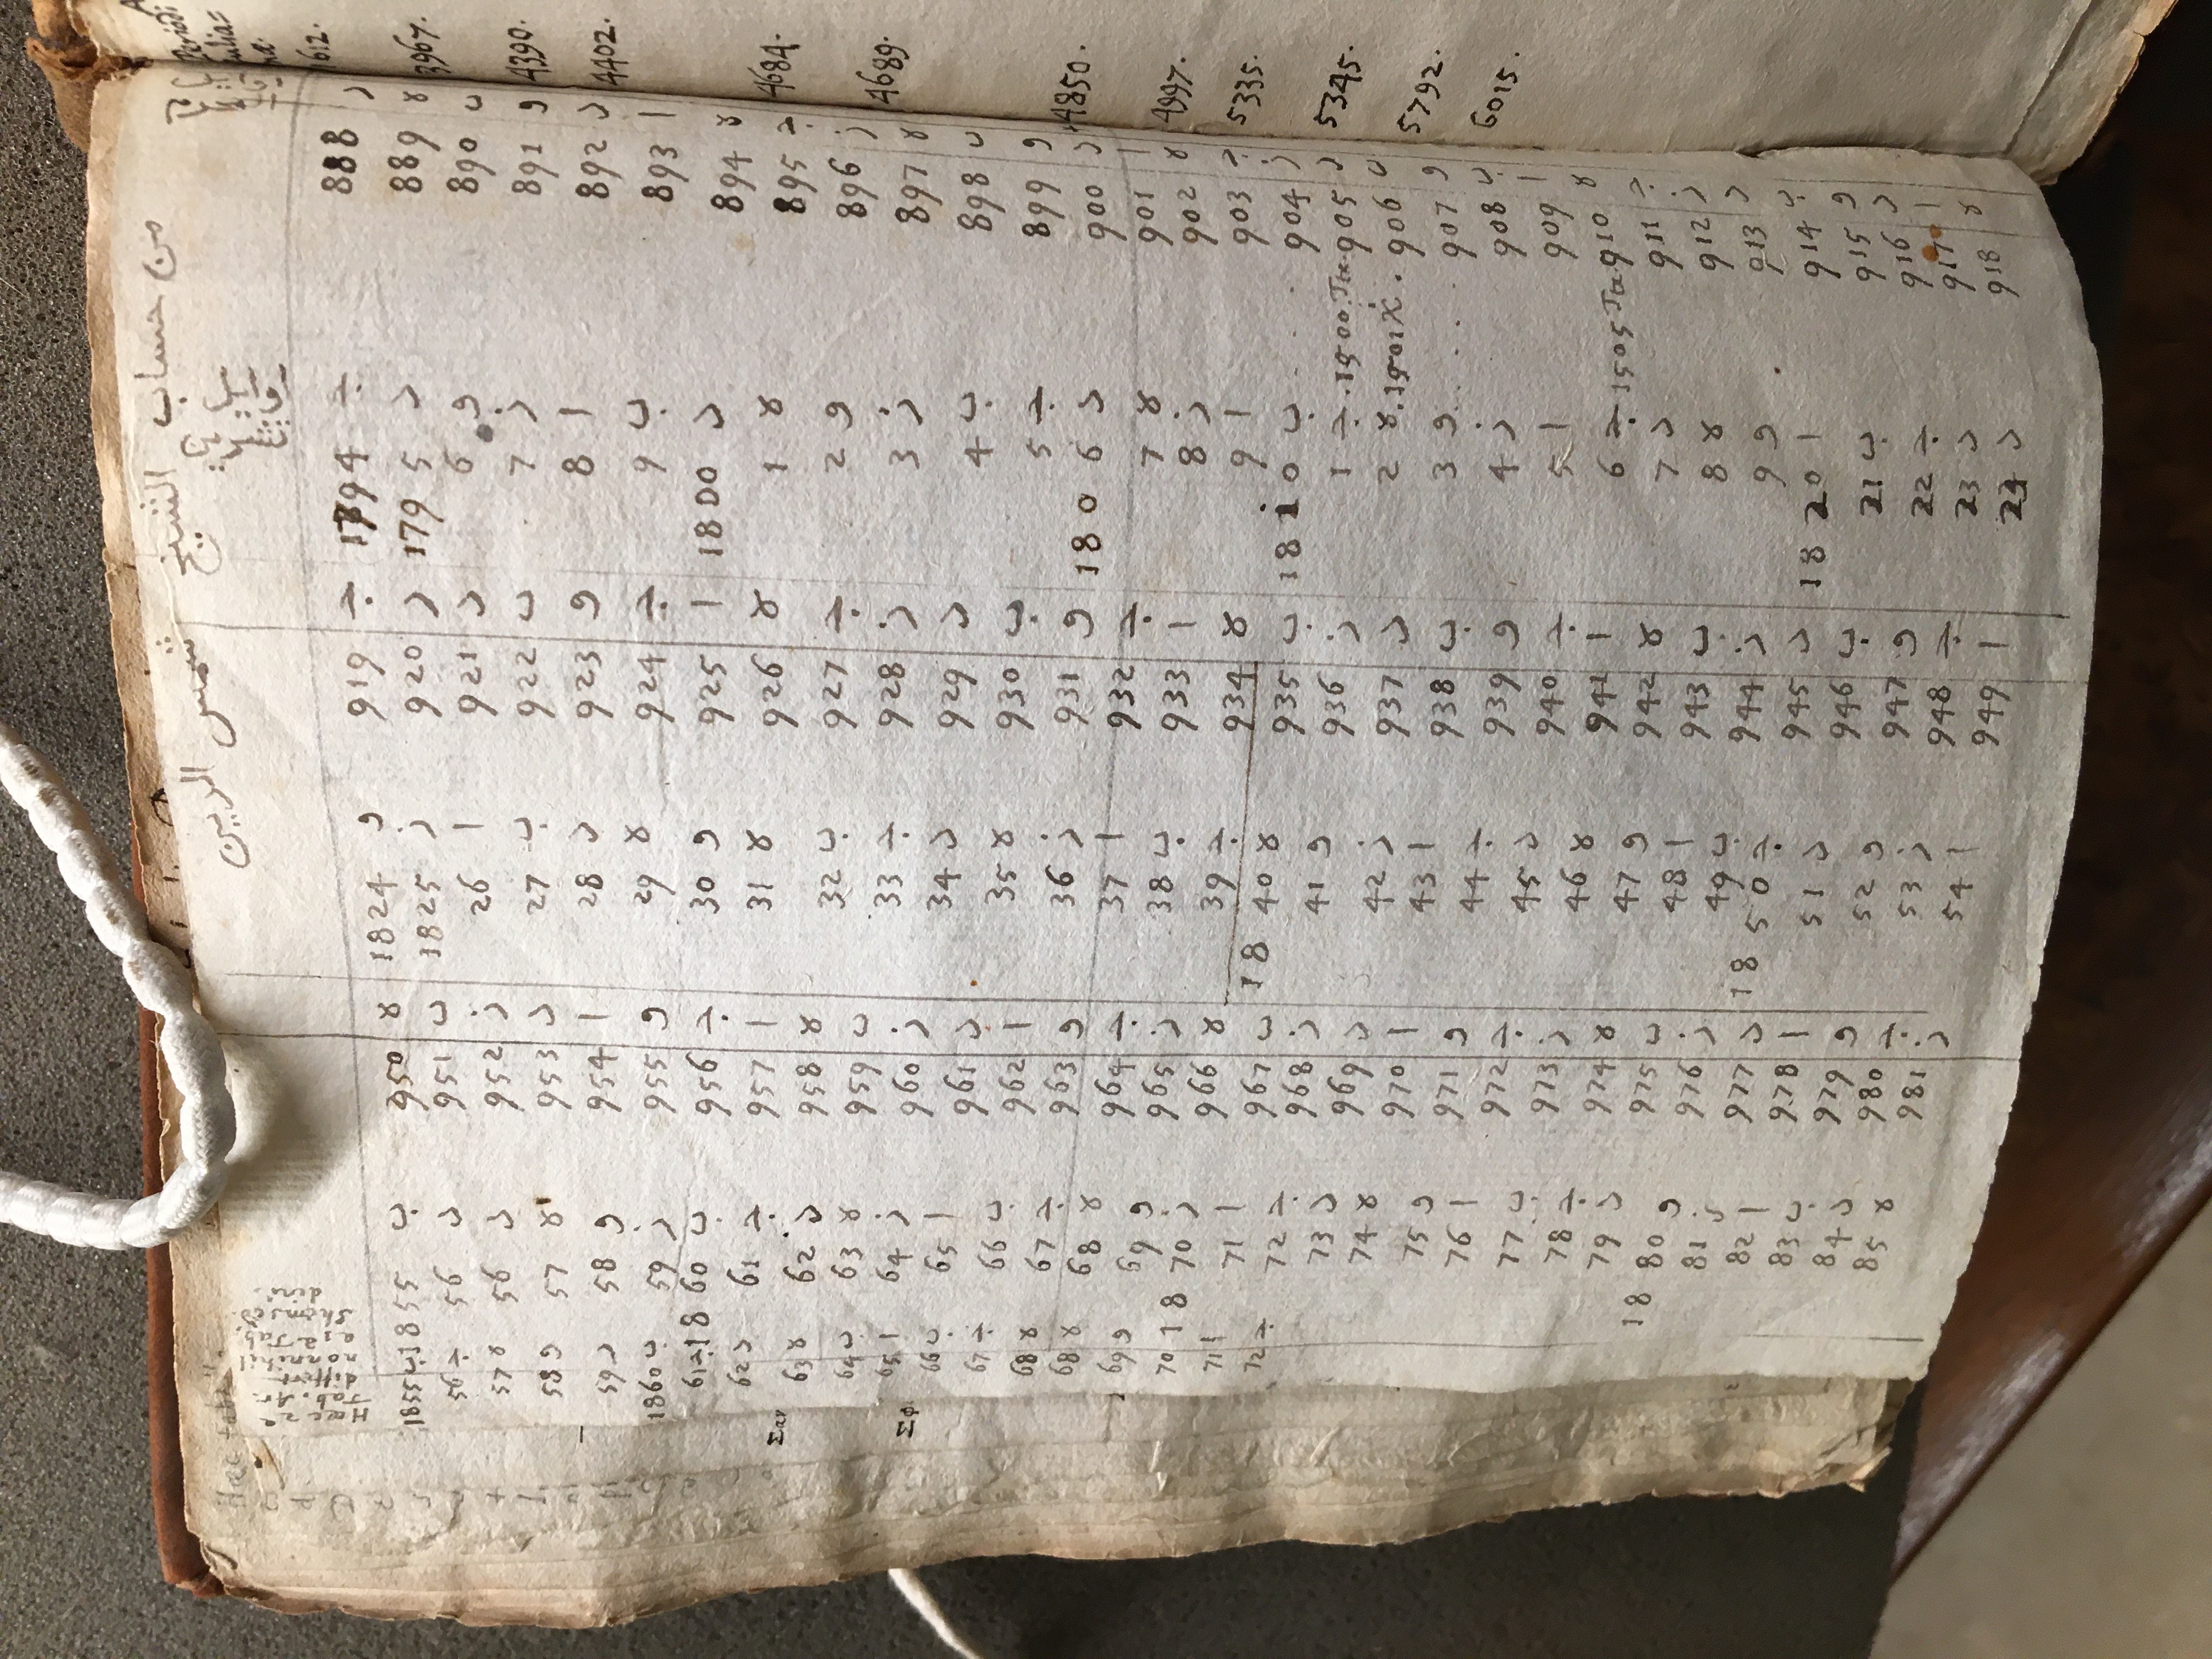 شمس الدين
من حساب الشيخ
1855 ب 18 55 ب 950 ه 1824 و 919 ج 1794 ج 888 د
56 ج 56 د 951 ب 1825 ز 920 ز 1795 د 889 ه
57 ه 56 د 952 ز 26 ا 921 د 6 و 890 ب
58 و 57 ه 953 د 27 ب 922 ب 7 ز 891 و
59 د 58 و 954 ا 28 د 923 و 8 ا 892 د
1860 ب 59 ز 955 و 29 ه 924 ج 9 ب 893 ا
61 ج 18 60 ب 956 ج 30 و 925 ا 1800 د 894 ه
62 د 61 ج 957 ا 31 ه 926 ه 1 ه 895 ج
63 ه 62 د 958 ه 32 ب 927 ج 2 و 896 ز
64 ب 63 ه 959 ب 33 ج 928 ز 3 ز 897 ه
65 ا 64 ز 960 ز 34 د 929 د 4 ب 898 ب
66 ب 65 ا 961 د 35 ه 930 ب 5 ج 899 و
67 ج 66 ب 962 ا 36 ز 931 و 180 6 د 900 د
68 ه 67 ج 963 و 37 ا 932 ج 7 ه 901 ا
68 ه 68 ه 964 ج 38 ب 933 ا 8 ز 902 ه
69 و 69 و 965 ز 39 ج 934 ه 9 ا 903 ج
70 18 70 ز 966 ه 18 40 ه 935 ب 1810 ب 904 ز
71 ا 71 ا 967 ب 41 و 936 ز 1 ج .1500. 905 د
72 ج 72 ج 968 ز 42 ز 937 د 2 ه .1501 906 ب
73 د 969 د 43 ا 938 ب 3 و 907 و
74 ه 970 ا 44 ج 939 و 4 ز 908 ب
75 و 971 و 45 د 940 ج 5 ا 909 ا
76 ا 972 ج 46 ه 941 ا 6 ج 1505 910 ه
77 ب 973 ز 47 و 942 ه 7 د 911 ج
78 ج 974 ه 48 ا 943 ب 8 ه 912 ز
79 د 975 ب 49 ب 944 ز 9 و 913 د
18 80 و 976 ز 18 50 ج 945 د 1820 ا 914 ب
81 ز 977 د 51 د 946 ب 21 ب 915 و
82 ا 978 ا 52 و 947 و 22 ج 916 د
83 ب 979 و 53 ز 948 ج 23 د 917 ا
84 د 980 ج 54 ا 949 ا 24 د 918 ه
85 ه 981 ز
612.
3967.
4390.
4402.
4684.
4689.
4850.
4997.
5335.
5345.
5792.
6015.